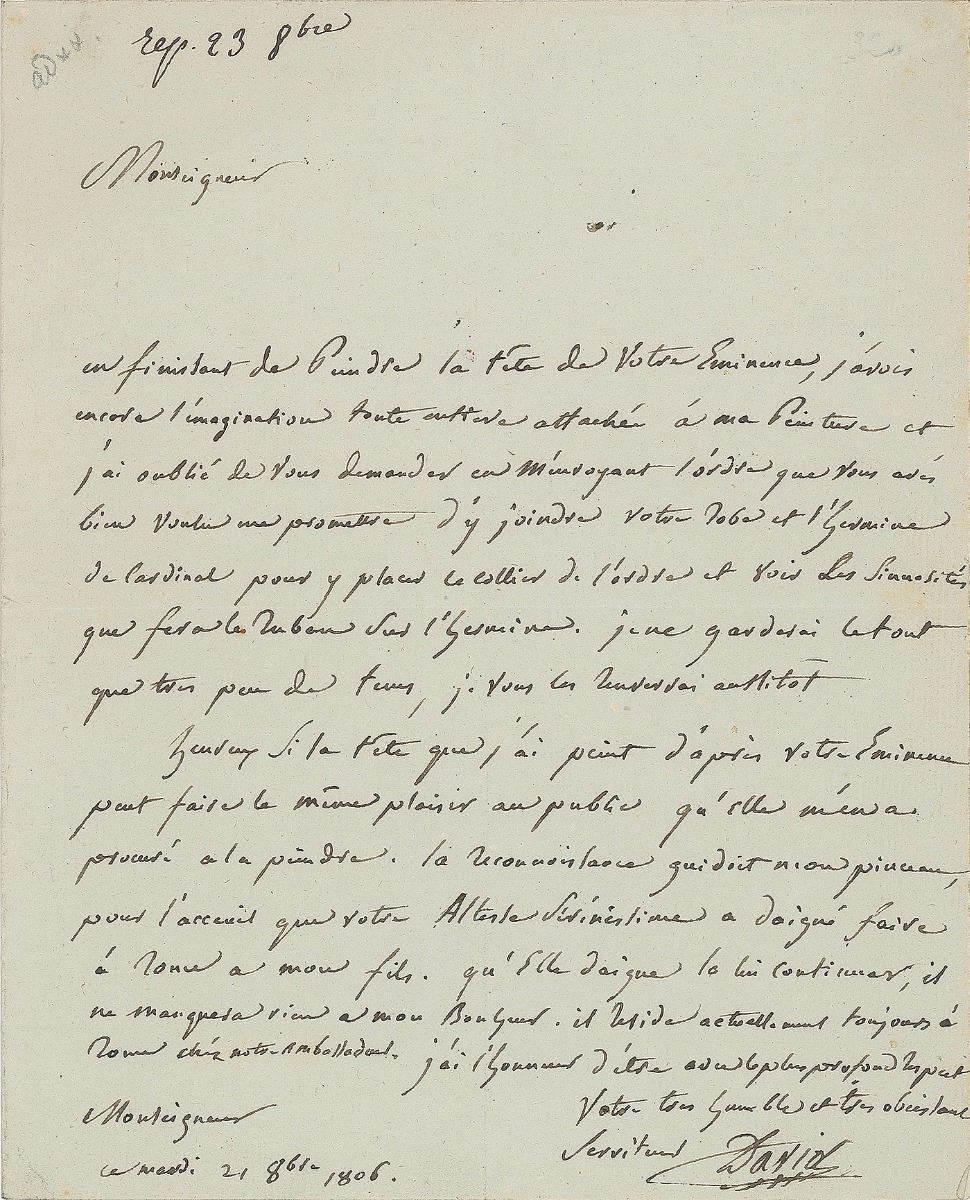 rep. 23 8bre
Monseigneur
en finissant de Peindre la tête de Votre Eminence, j'avois
encore l'imagination toute entiere attachée á ma Peinture et
j'ai oublié de Vous demander en m'envoyant l'ordre que vous avés
bien voulu me promettre d'y joindre votre robe et l'hermine
de Cardinal pour y placer le collier de l'ordre et voir Les Sinuosités
que fera le Ruban sur l'hermine. je ne garderai le tout
que tres peu de tems, je vous les renverrai aussitôt
heureux si la tête que j'ai peint d'après votre Eminence
peut faire le même plaisir au public qu'elle m'en a
procuré a la peindre. la reconnoissance guidoit mon pinceau,
pour l'acceuil que votre Altesse Sérénissime a daigné faire
á Rome a mon fils. qu'Elle daigne le lui continuer, il
ne manquera rien a mon Bonheur. il reside actuellement toujours à
Rome chéz notre Ambassadeur. j'ai l'honneur d'être avec le plus profond respect
Monseigneur
Votre tres humble et très obeissant
Serviteur David
ce mardi 21 8bre 1806.